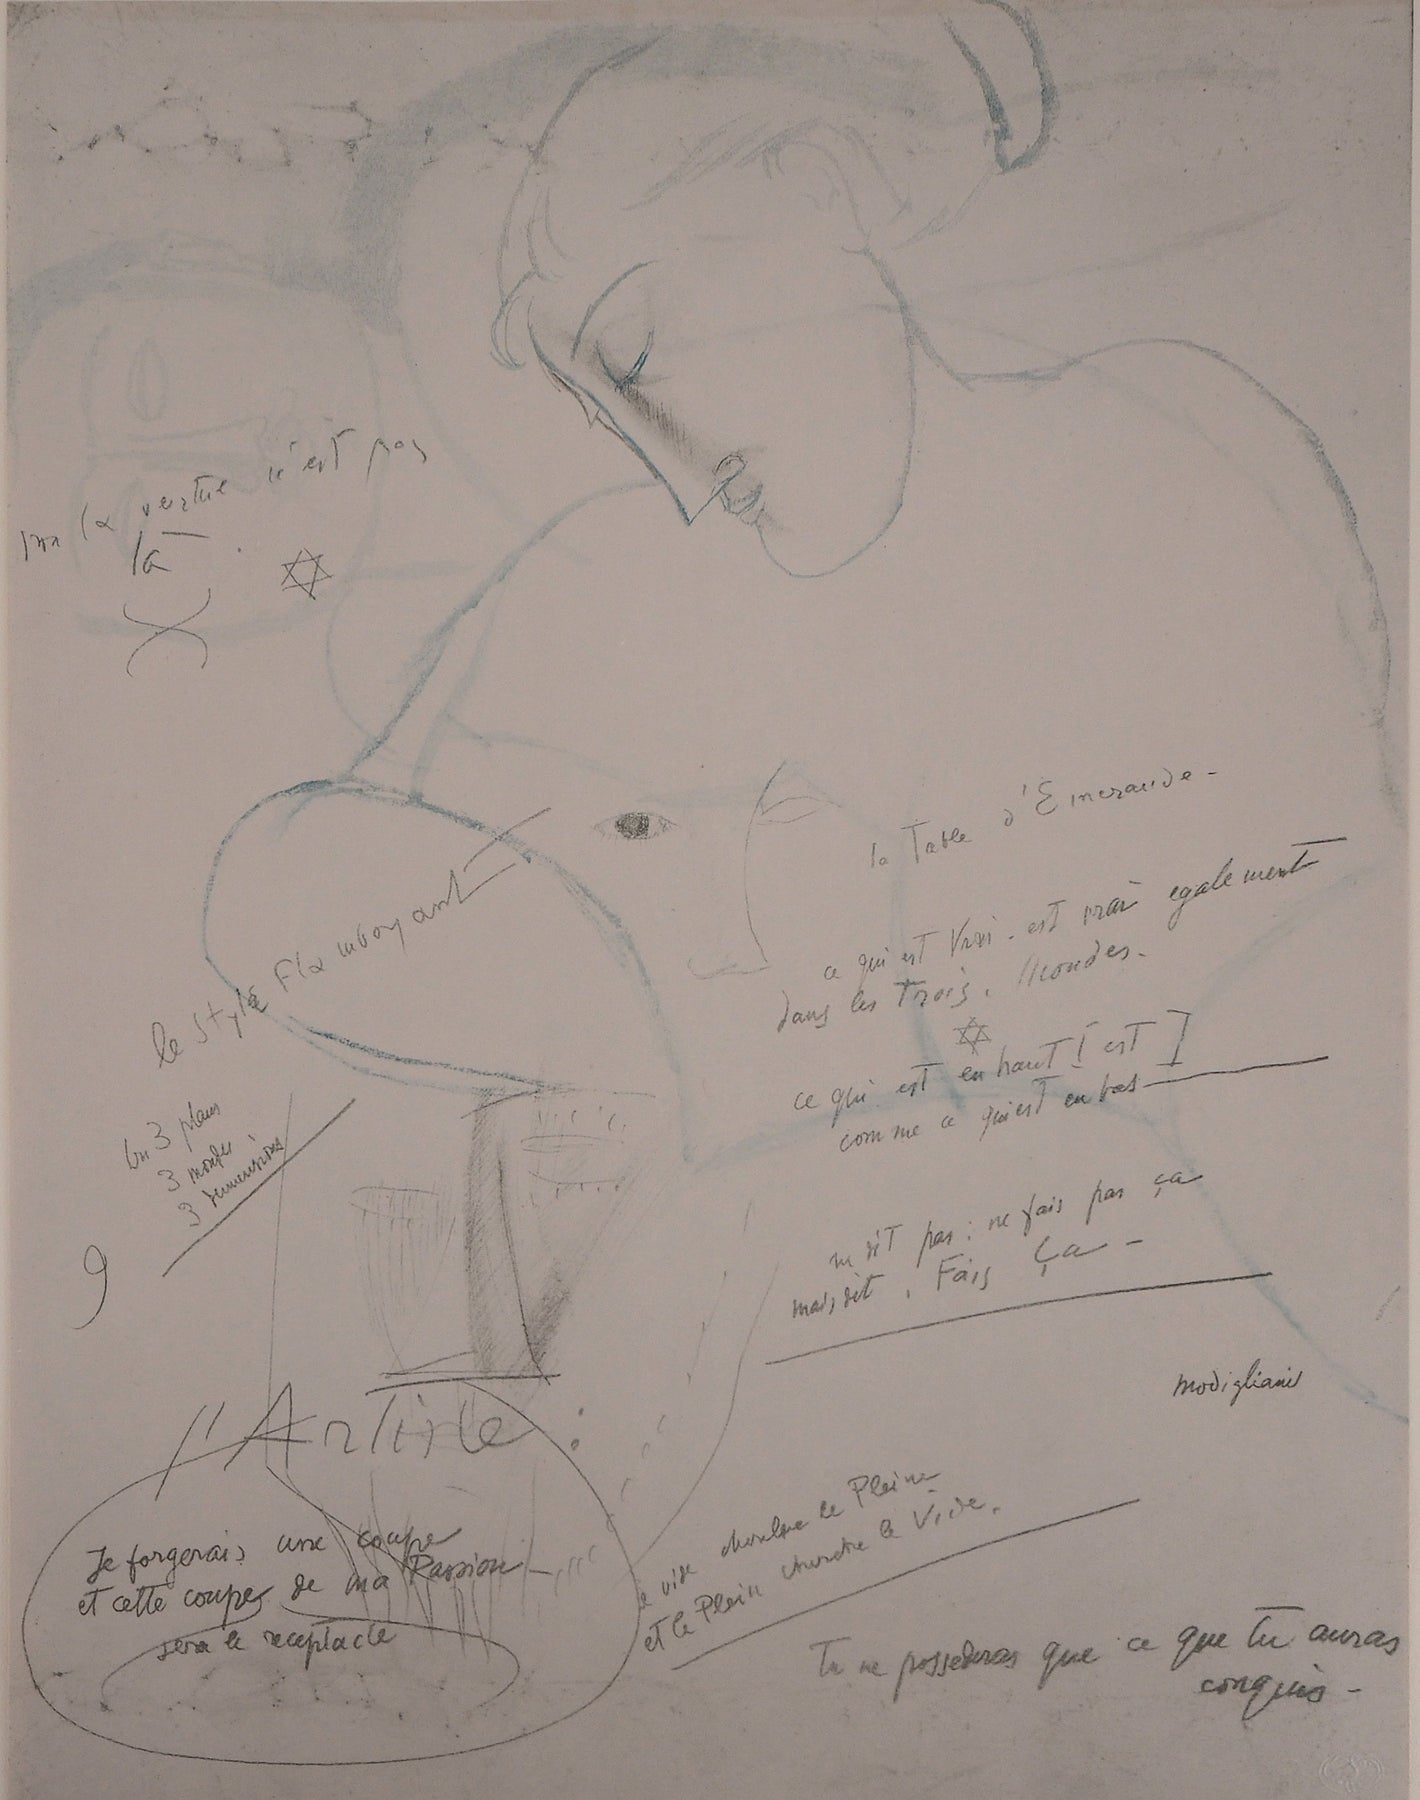 la vertue n'est pas
là
la Table d'Emeraude -
ce qui est Vrai - est vrai egalement
dans les Trois. Mondes.
le Style Flamboyant
ce qui est en haut [ est ]
comme ce qui est en bas
en 3 plans
3 mondes
3 dimensions
9
dit pas : ne fais pas ça
mais dit . Fais Ça -
modigliani
l'Artiste
le vide cherche le Plein
et le Plein cherche le Vide.
Je forgerais une coupe
et cette coupe de ma Passion -
sera le receptacle
Tu ne possederas que ce que tu auras
conquis -